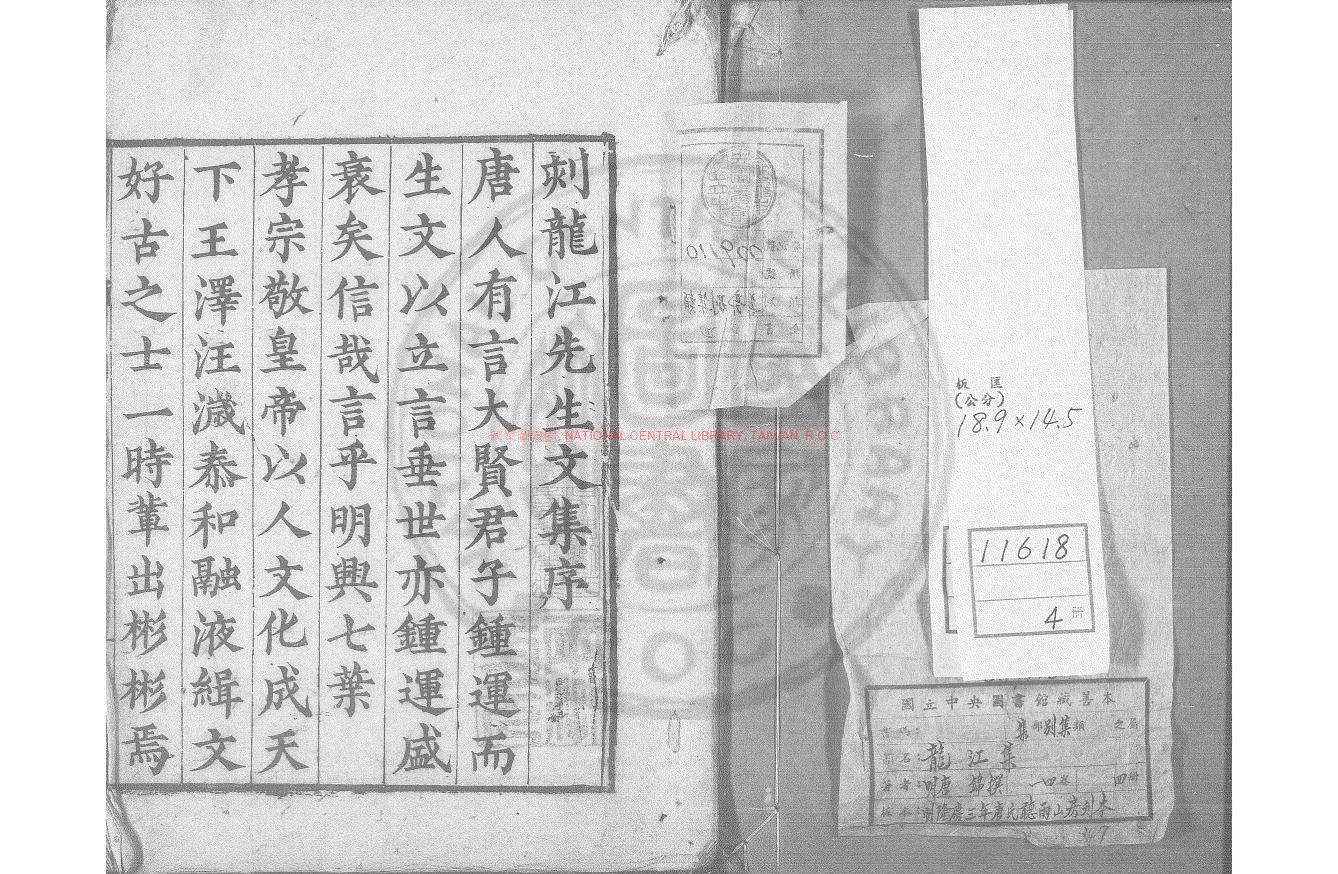 刻龍江先生文集序
唐人有言大賢君子鍾運而
生文以立言垂世亦鍾運盛
衰矣信哉言乎明興七葉
孝宗敬皇帝以人文化成天
下王澤汪濊泰和融液緝文
好古之士一時輩出彬彬焉
009110
板匡
(公分)
18.9×14.5
11618
4 冊
國立中央圖書館藏善本
集部別集類 之屬
書名:龍江集
著者:明唐錦撰 一四卷 四冊
板本:明隆慶三年唐氏聽雨山房刊本
國家圖書館, NATIONAL CENTRAL LIBRARY, TAIWAN, R.O.C